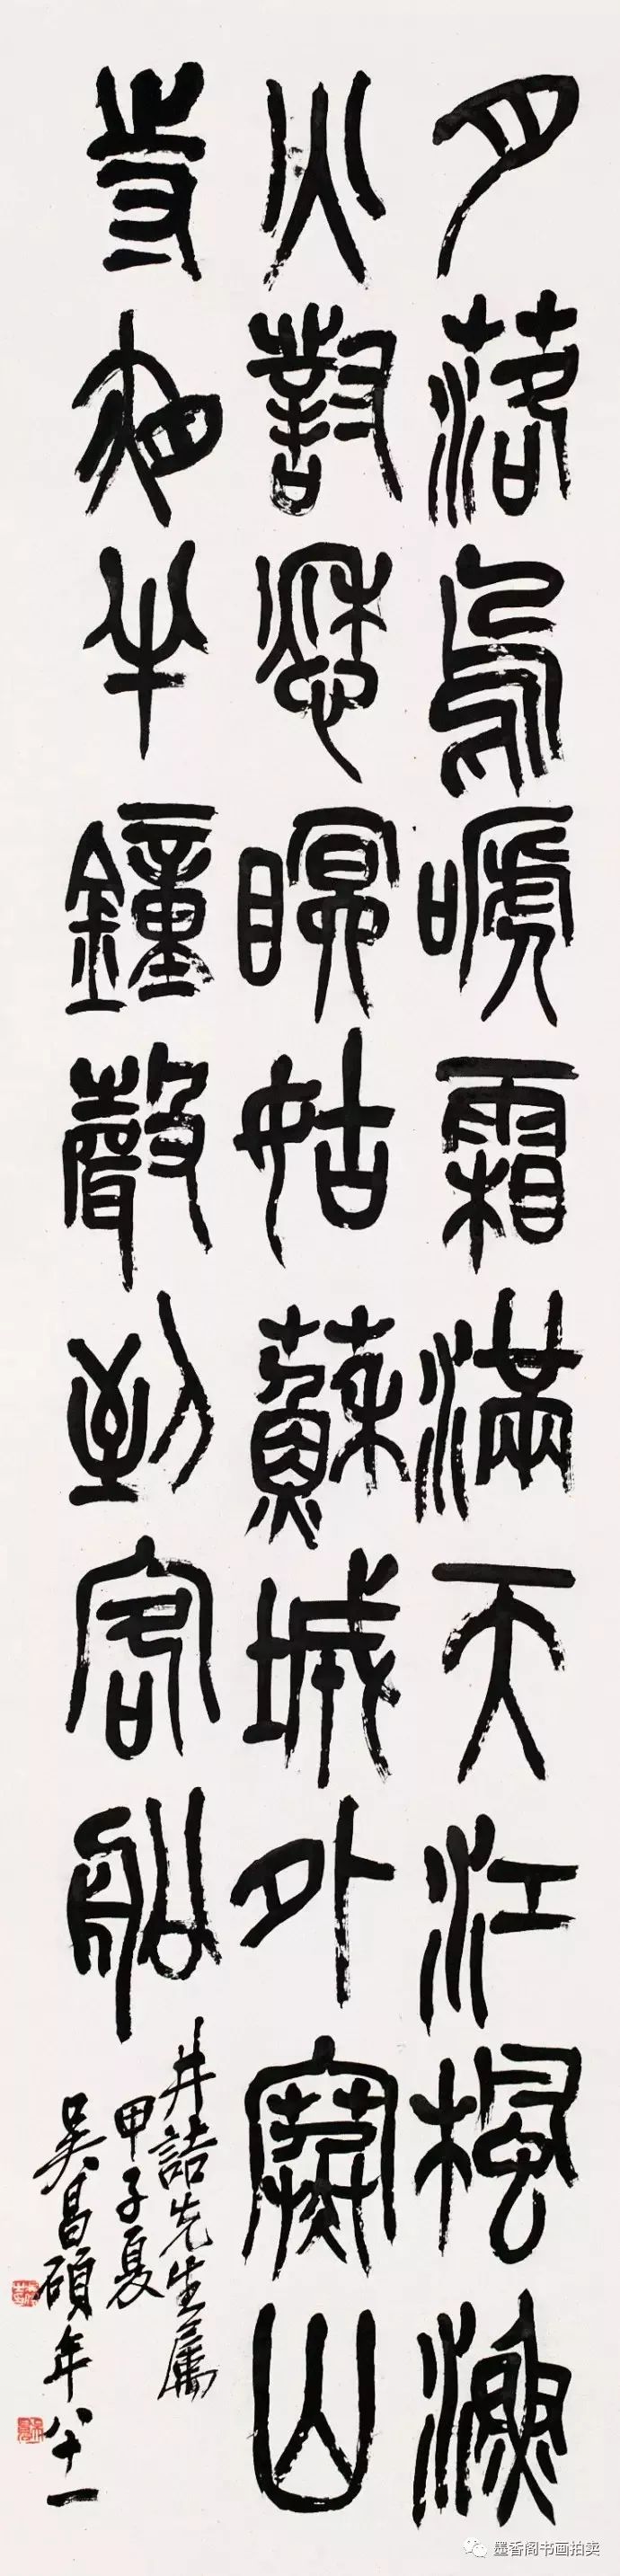 月落烏嗁霜滿天江楓漁
火對愁瞑姑蘇城外寒山
寺夜半鐘聲到客船
井詰先生屬
甲子夏
吳昌碩年八十一
墨香阁书画拍卖